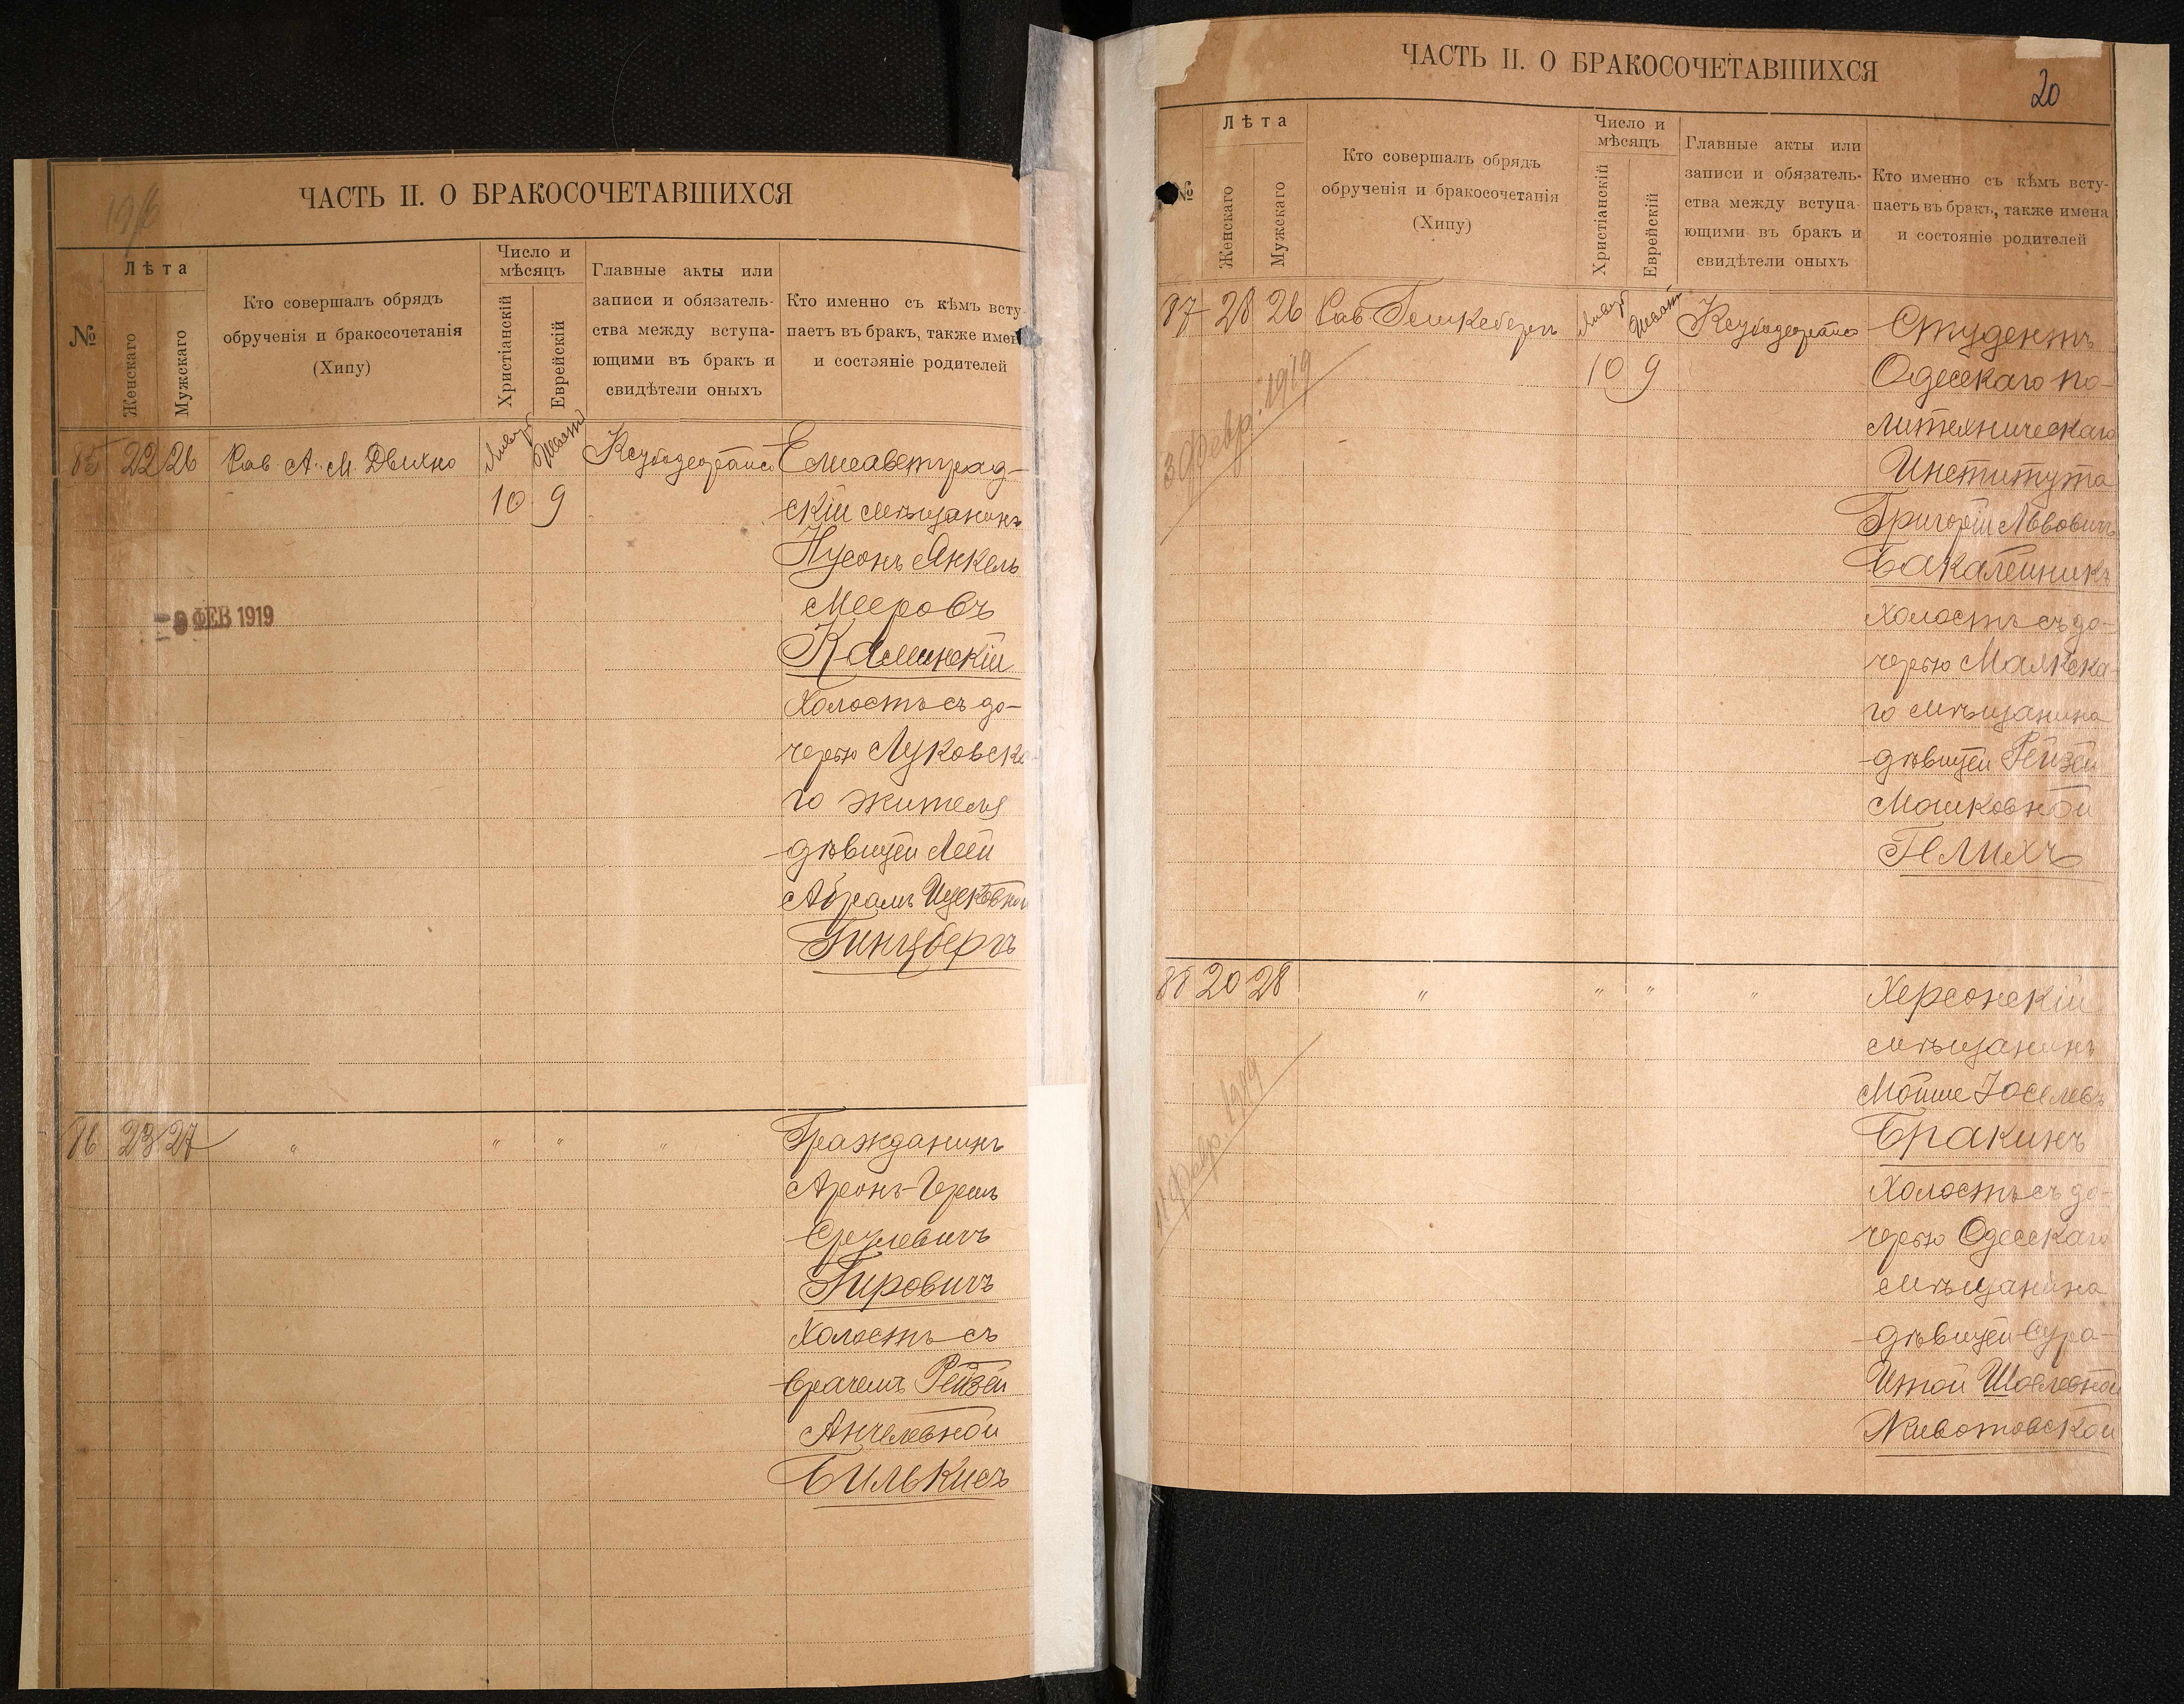 ЧАСТЬ II. О БРАКОСОЧЕТАВШИХСЯ
№
Лѣта
Женскаго
Мужскаго
Кто совершалъ обрядъ
обрученія и бракосочетанія
(Хипу)
Число и
мѣсяцъ
Христіанскій
Еврейскій
Главные акты или
записи и обязатель-
ства между вступа-
ющими въ бракъ и
свидѣтели оныхъ
Кто именно съ кѣмъ всту-
паетъ въ бракъ, также имен
и состояніе родителей
85 22 26 Рав. А. М. Двихно
10 9
Елисаветград-
скій мѣщанинъ
Нусонъ Янкель
Мееровъ
Каминскій
холостъ съ до-
черью Луковска-
го жителя
дѣвицей Леей
Абрамъ Ицковной
Гинцбергъ
9 ФЕВ 1919
86 23 27 " " " "
Гражданинъ
Аронъ-Герш
Срулевичъ
Гировичъ
холостъ съ
врачемъ Рейзей
Анчелевной
Билькисъ
ЧАСТЬ II. О БРАКОСОЧЕТАВШИХСЯ
20
№
Лѣта
Женскаго
Мужскаго
Кто совершалъ обрядъ
обрученія и бракосочетанія
(Хипу)
Число и
мѣсяцъ
Христіанскій
Еврейскій
Главные акты или
записи и обязатель-
ства между вступа-
ющими въ бракъ и
свидѣтели оныхъ
Кто именно съ кѣмъ всту-
паетъ въ бракъ, также имена
и состояніе родителей
87 28 26 Рав
10 9
Студентъ
Одесскаго по-
литехническаго
Института
Григорій Львовичъ
Бакалейникъ
холостъ съ до-
черью
го мѣщанина
дѣвицей Рейзей
Мошковной
Гелихъ
3 февр. 1919
88 20 28 " " " "
Херсонскій
мѣщанинъ
Мойше Іоселевъ
Бракинъ
холостъ съ до-
черью Одесскаго
мѣщанина
дѣвицей Сура-
Итой Шоелевной
Животовской
11 февр 1919